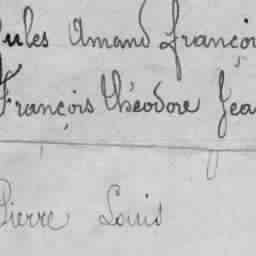 Jules Amand François
François Théodore Jea
Pierre Louis